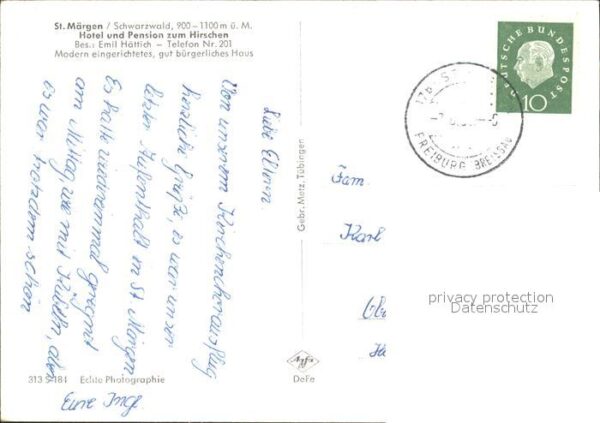 St. Märgen / Schwarzwald, 900–1100 m ü. M.
Hotel und Pension zum Hirschen
Bes.: Emil Hättich – Telefon Nr. 201
Modern eingerichtetes, gut bürgerliches Haus
Liebe Eltern.
Von unserem Kirchenchorausflug
herzliche Grüße, es war unser
letzter Aufenthalt in St. Märgen
Es hatte wiedereinmal geregnet
am Mittag wie mit Kübeln, aber
es war trotzdem schön
Eure Ingl
313 S 184 Echte Photographie
Gebr. Metz, Tübingen
Agfa
DeFe
DEUTSCHE BUNDESPOST
10
FREIBURG BREISGAU
Fam.
Karl
privacy protection
Datenschutz